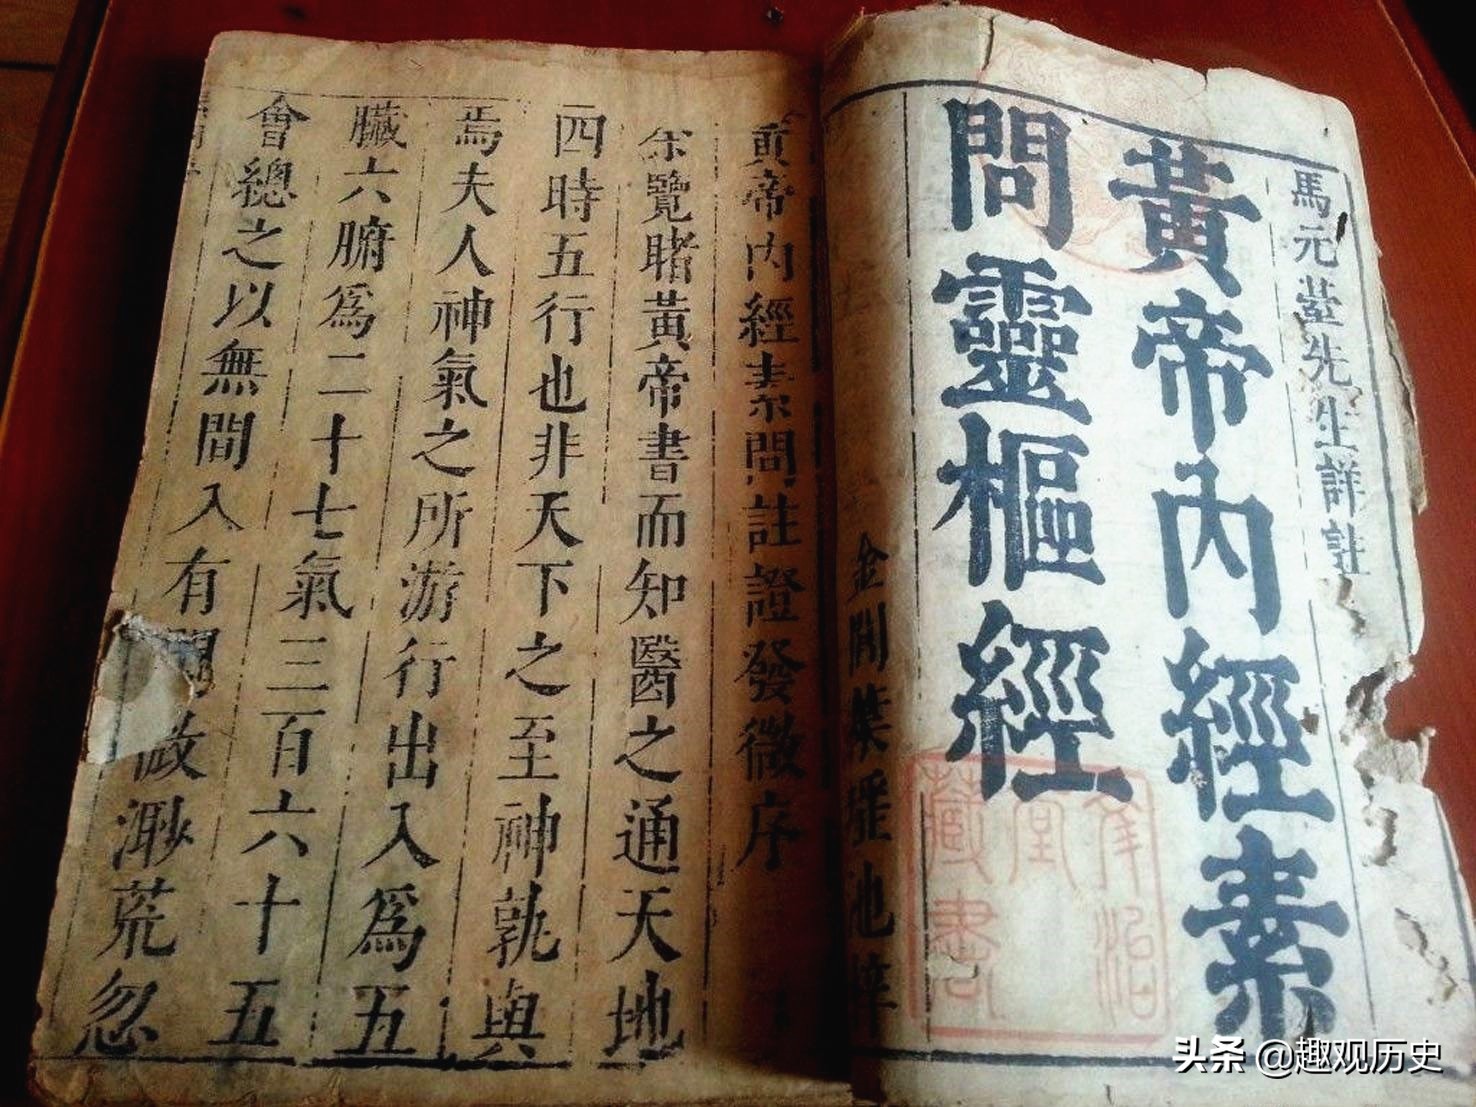 馬元臺先生詳註
黃帝內經素
問靈樞經
金閶葉瑶池梓
黃帝內經素問註證發微序
余覽睹黃帝書而知醫之通天地
四時五行也非天下之至神孰與
焉夫人神氣之所游行出入為五
臟六腑爲二十七氣三百六十五
會總之以無間入有間故渺荒忽
藏書
头条 @趣观历史